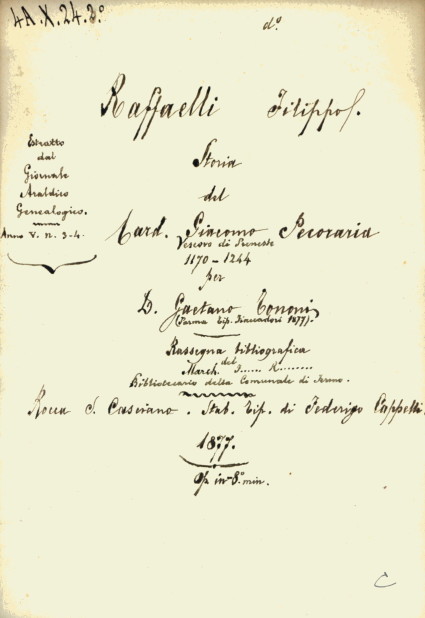 4A.X.24.2.°
d.°
Raffaelli Filippo.
Estratto
dal
Giornale
Araldico
Genealogico.
Anno V. n. 3-4.
Storia
del
Card. Giacomo Pecoraria
Vescovo di Preneste
1170-1244
per
D. Gaetano Tononi
(Parma tip. Fiaccadori 1877).
Rassegna bibliografica
del
March. F..... R........
Bibliotecario della Comunale di Fermo.
Rocca S. Casciano. Stab. Tip. di Federigo Cappelli.
1877.
in-8.° min.
C